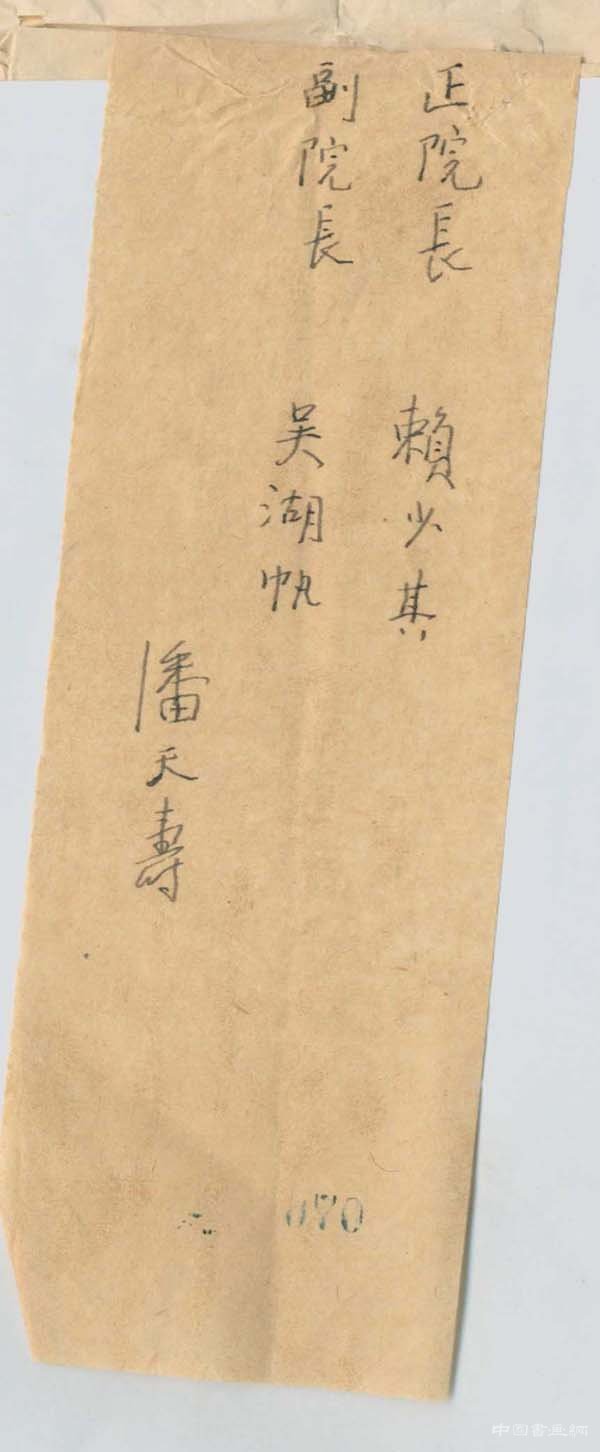 正院長 賴少其
副院長 吴湖帆
潘天壽
070
中国書画網